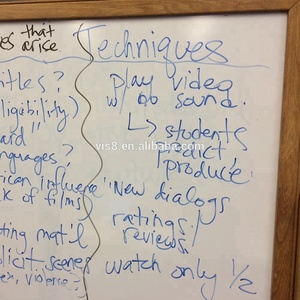 that
arise
Techniques
titles?
play video
ligibility.)
w/ no sound.
students
predict
nguages?
produce
rican influence
New dialogs
k of films)
ratings /
reviews
ting mat'l
plicit scenes
watch only 1/2
ex, violence?
vis8.en.alibaba.com